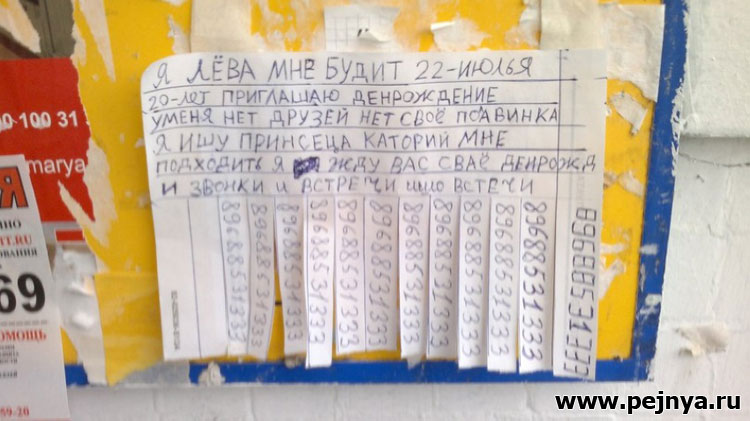 Я ЛЁВА МНЕ БУДИТ 22-ИЮЛЬЯ
20-ЛЕТ ПРИГЛАШАЮ ДЕНРОЖДЕНИЕ
УМЕНЯ НЕТ ДРУЗЕЙ НЕТ СВОЁ ПОАВИНКА
Я ИШУ ПРИНСЕЦА КАТОРИЙ МНЕ
ПОДХОДИТЬ Я ЖДУ ВАС СВАЁ ДЕНРОЖД
И ЗВОНКИ И ВСТРЕЧИ ИШО ВСТЕЧИ
89688531333
89688531333
89688531333
89688531333
89688531333
89688531333
89688531333
89688531333
89688531333
89688531333
89688531333
89688531333
100 31
marya
Я
ИНО
IT.RU
ОВАНИЯ
69
ПОМОЩЬ
59-20
www.pejnya.ru